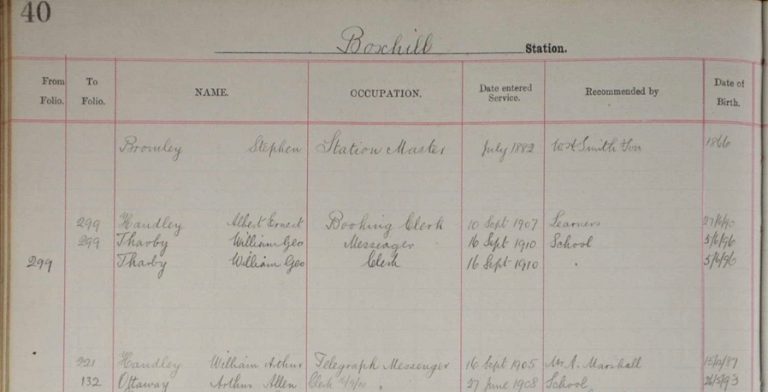 40
Boxhill Station.
From Folio. To Folio. NAME. OCCUPATION. Date entered Service. Recommended by Date of Birth.
Bromley Stephen Station Master July 1882 W H Smith & Son 1866
299 Handley Albert Ernest Booking Clerk 10 Sept 1907 Learners
299 Tharby William Geo Messenger 16 Sept 1910 School 5/6/96
299 Tharby William Geo Clerk 16 Sept 1910 " 5/6/96
221 Handley William Arthur Telegraph Messenger 16 Sept 1905 Mr A. Marshall
132 Ottaway Arthur Allen Clerk 27 June 1908 School